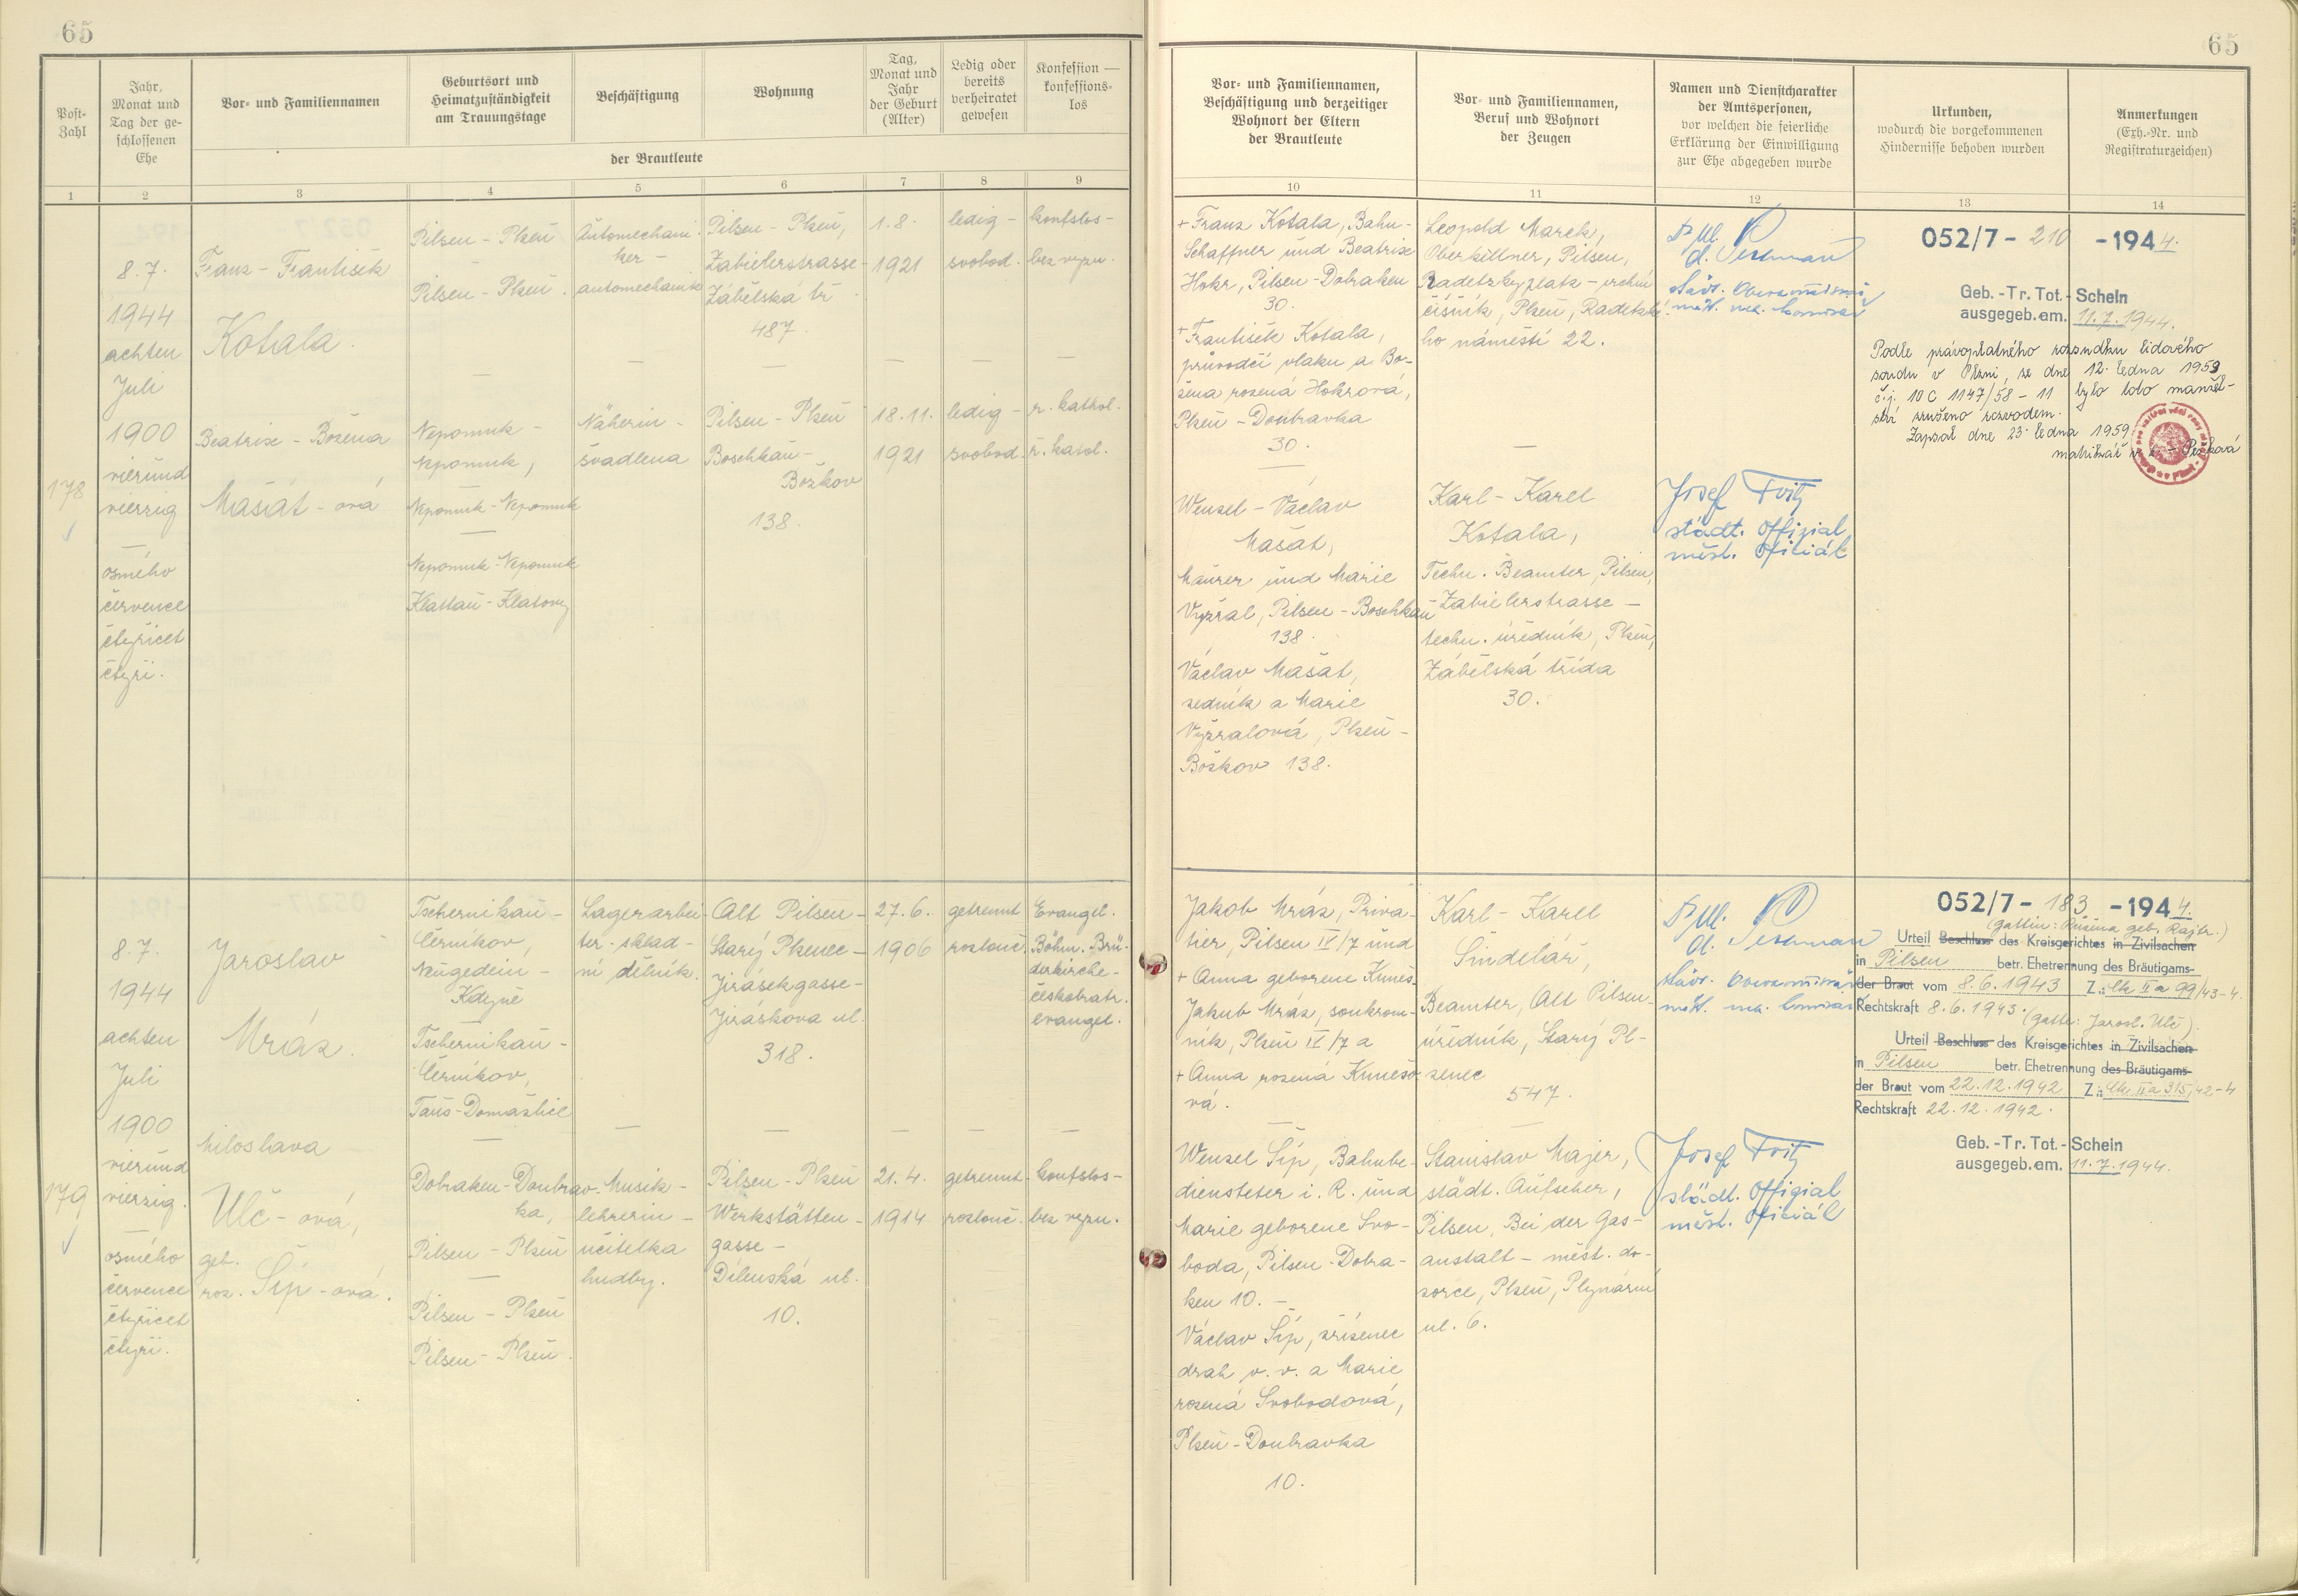 65
65
Post-
Zahl
Jahr,
Monat und
Tag der ge-
schlossenen
Ehe
Vor- und Familiennamen
Geburtsort und
Heimatzuständigkeit
am Trauungstage
Beschäftigung
Wohnung
Tag,
Monat und
Jahr
der Geburt
(Alter)
Ledig oder
bereits
verheiratet
gewesen
Konfession —
konfessions-
los
der Brautleute
Vor- und Familiennamen,
Beschäftigung und derzeitiger
Wohnort der Eltern
der Brautleute
Vor- und Familiennamen,
Beruf und Wohnort
der Zeugen
Namen und Dienstcharakter
der Amtspersonen,
vor welchen die feierliche
Erklärung der Einwilligung
zur Ehe abgegeben wurde
Urkunden,
wodurch die vorgekommenen
Hindernisse behoben wurden
Anmerkungen
(Exh.-Nr. und
Registraturzeichen)
1 2 3 4 5 6 7 8 9 10 11 12 13 14
178
8.7.
1944
achten
Juli
1900
vierund
vierzig
—
osmého
července
čtyřicet
čtyři.
Franz - František
Kotala.
Beatrix - Božena
Mašát - ová
Pilsen - Plzeň
—
Pilsen - Plzeň.
—
Nepomuk -
Nepomuk,
—
Nepomuk - Nepomuk
—
Nepomuk - Nepomuk
Klattau - Klatovy
Automechani-
ker -
automechanik
—
Näherin -
švadlena
Pilsen - Plzeň,
Zabielerstrasse -
Zábělská tř.
487.
—
Pilsen - Plzeň
Boschkau -
Božkov
138.
1.8.
1921
—
18.11.
1921
ledig -
svobod.
—
ledig -
svobod.
konfslos -
bez vyzn.
—
r. kathol.
ř. katol.
+ Franz Kotala, Bahn-
Schaffner und Beatrix
Hokr, Pilsen-Dobraken
30.
+ František Kotala,
průvodčí vlaku a Bo-
žena rozená Hokrová,
Plzeň - Doubravka
30.
—
Wenzel - Václav
Mašát,
Maurer und Marie
Vyzral, Pilsen - Boschkau
138.
Václav Mašát,
zedník a Marie
Vyzralová, Plzeň -
Božkov 138.
Leopold Marek,
Oberkellner, Pilsen,
Radetzkyplatz - vrchní
číšník, Plzeň, Radetzké-
ho náměstí 22.
—
Karl - Karel
Kotala,
Techn. Beamter, Pilsen,
Zabielerstrasse -
techn. úředník, Plzeň,
Zábělská třída
30.
Josef Fritz
städt. Offizial
měst. oficiál
052/7 - 210 - 1944.
Geb.-Tr. Tot.-Schein
ausgegeb. am. 11.7.1944.
Podle právoplatného rozsudku lidového
soudu v Plzni, ze dne 12. ledna 1959
č.j. 10 C 1147/58 - 11 bylo toto manžel-
ství zrušeno rozvodem.
Zapsal dne 23. ledna 1959
179
8.7.
1944
achten
Juli
1900
vierund
vierzig.
—
osmého
července
čtyřicet
čtyři.
Jaroslav
Mráz.
Miloslava
Ulč - ová,
geb.
roz. Šíp - ová.
Tschernikau -
Černíkov,
Neugedein -
Kdyně
—
Tschernikau -
Černíkov,
Taus - Domažlice
—
Dobraken - Doubrav-
ka,
Pilsen - Plzeň
—
Pilsen - Plzeň
Pilsen - Plzeň.
Lagerarbei-
ter - sklad-
ní dělník.
—
Musik -
lehrerin -
učitelka
hudby.
Alt Pilsen -
Starý Plzenec -
Jirásekgasse -
Jiráskova ul.
318.
—
Pilsen - Plzeň
Werkstätten -
gasse -
Dílenská ul.
10.
27.6.
1906
—
21.4.
1914
getrennt
rozlouč.
—
getrennt
rozlouč.
Evangel.
Böhm. Brü-
derkirche -
českobratr.
evangel.
—
konfslos -
bez vyzn.
Jakob Mráz, Priva-
tier, Pilsen IV/7 und
+ Anna geborene Kuneš
Jakub Mráz, soukrom-
ník, Plzeň IV/7 a
+ Anna rozená Kunešo-
vá.
—
Wenzel Šíp, Bahnbe-
diensteter i. R. und
Marie geborene Svo-
boda, Pilsen-Dobra-
ken 10. -
Václav Šíp, zřízenec
drah v. v. a Marie
rozená Svobodová,
Plzeň - Doubravka
10.
Karl - Karel
Šindelář,
Beamter, Alt Pilsen -
úředník, Starý Pl-
zenec
547.
—
Stanislav Majer,
städt. Aufseher,
Pilsen, Bei der Gas-
anstalt - měst. do-
zorce, Plzeň, Plynární
ul. 6.
Josef Fritz
städt. Offizial
měst. oficiál
052/7 - 183 - 1944.
(Gattin: Růžena geb. Rajtr.)
Urteil Beschluss des Kreisgerichtes in Zivilsachen
in Pilsen betr. Ehetrennung des Bräutigams-
der Braut vom 8.6.1943 Z.: Ck II a 99/43-4.
Rechtskraft 8.6.1943. (Gatte: Jarosl. Ulč).
Urteil Beschluss des Kreisgerichtes in Zivilsachen
in Pilsen betr. Ehetrennung des Bräutigams-
der Braut vom 22.12.1942 Z.: Ck II a 315/42-4
Rechtskraft 22.12.1942.
Geb.-Tr. Tot.-Schein
ausgegeb. am. 11.7.1944.